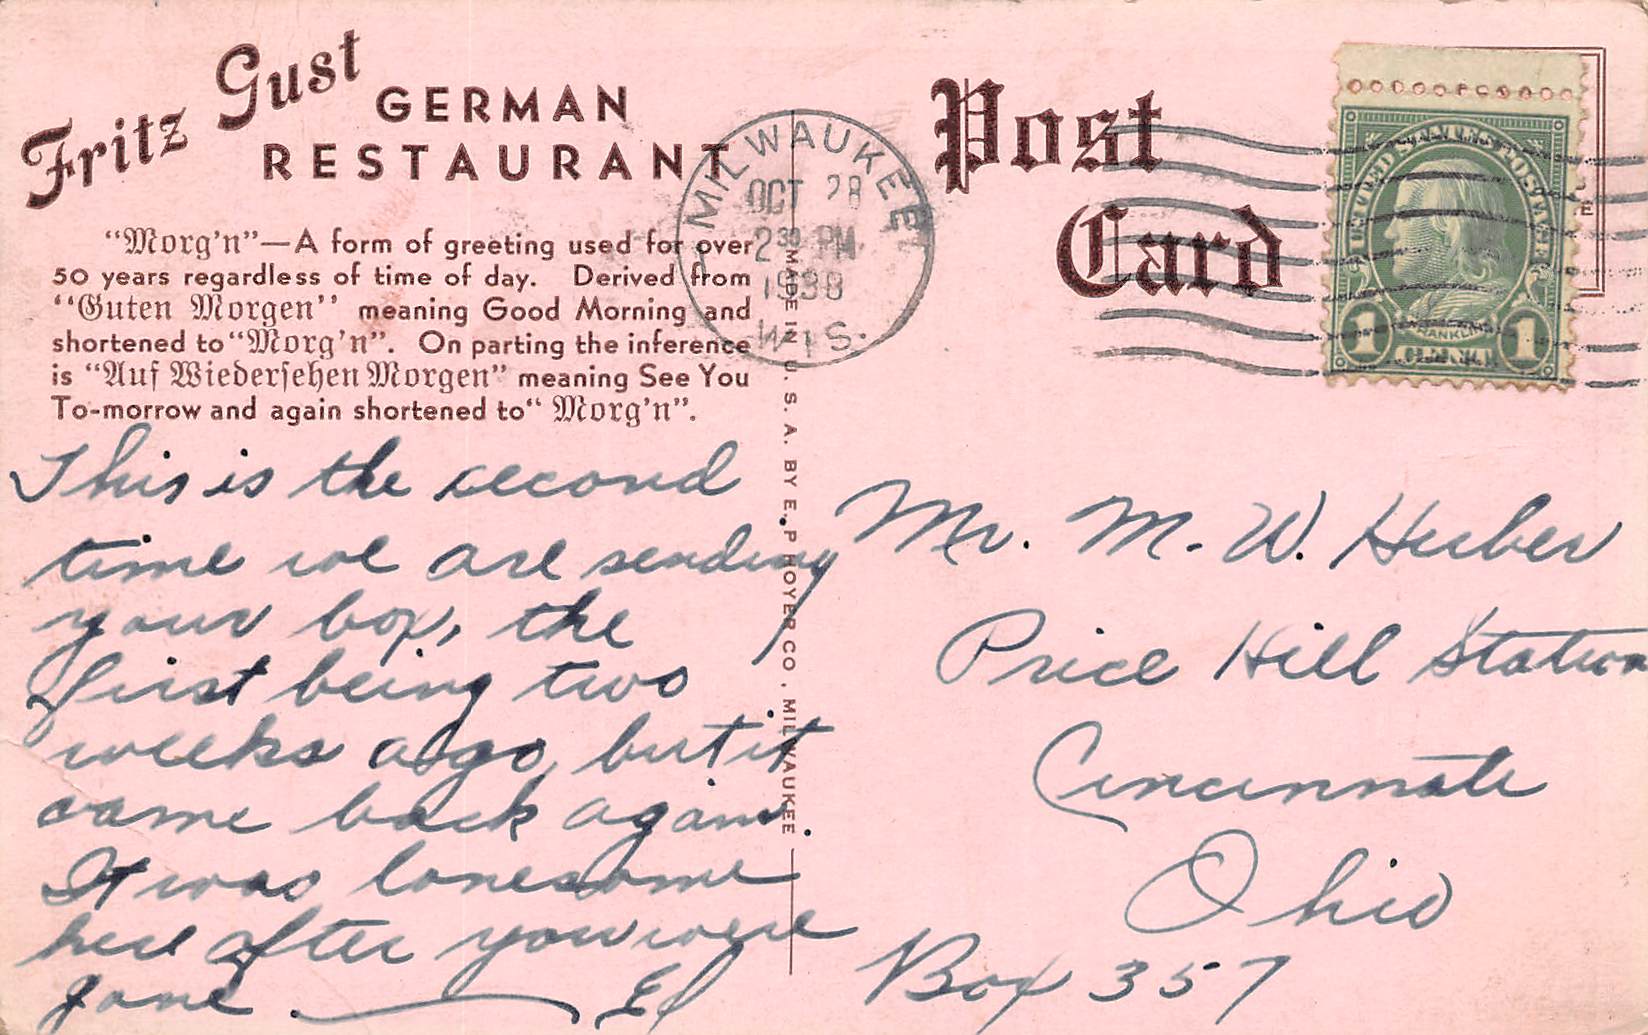 Fritz Gust GERMAN
RESTAURANT
"Morg'n"—A form of greeting used for over
50 years regardless of time of day. Derived from
"Guten Morgen" meaning Good Morning and
shortened to "Morg'n". On parting the inference
is "Auf Wiedersehen Morgen" meaning See You
To-morrow and again shortened to "Morg'n".
This is the second
time we are sending
your box, the
first being two
weeks ago, but it
came back again.
It was lonesome
here after you were
gone. El
MADE IN U. S. A. BY E. P. HOYER CO. MILWAUKEE
Post
Card
MILWAUKEE
OCT 28
2 30 PM
1938
WIS.
UNITED STATES POSTAGE
FRANKLIN
1 1
Mr. M. W. Huber
Price Hill Station
Cincinnati
Ohio
Box 357